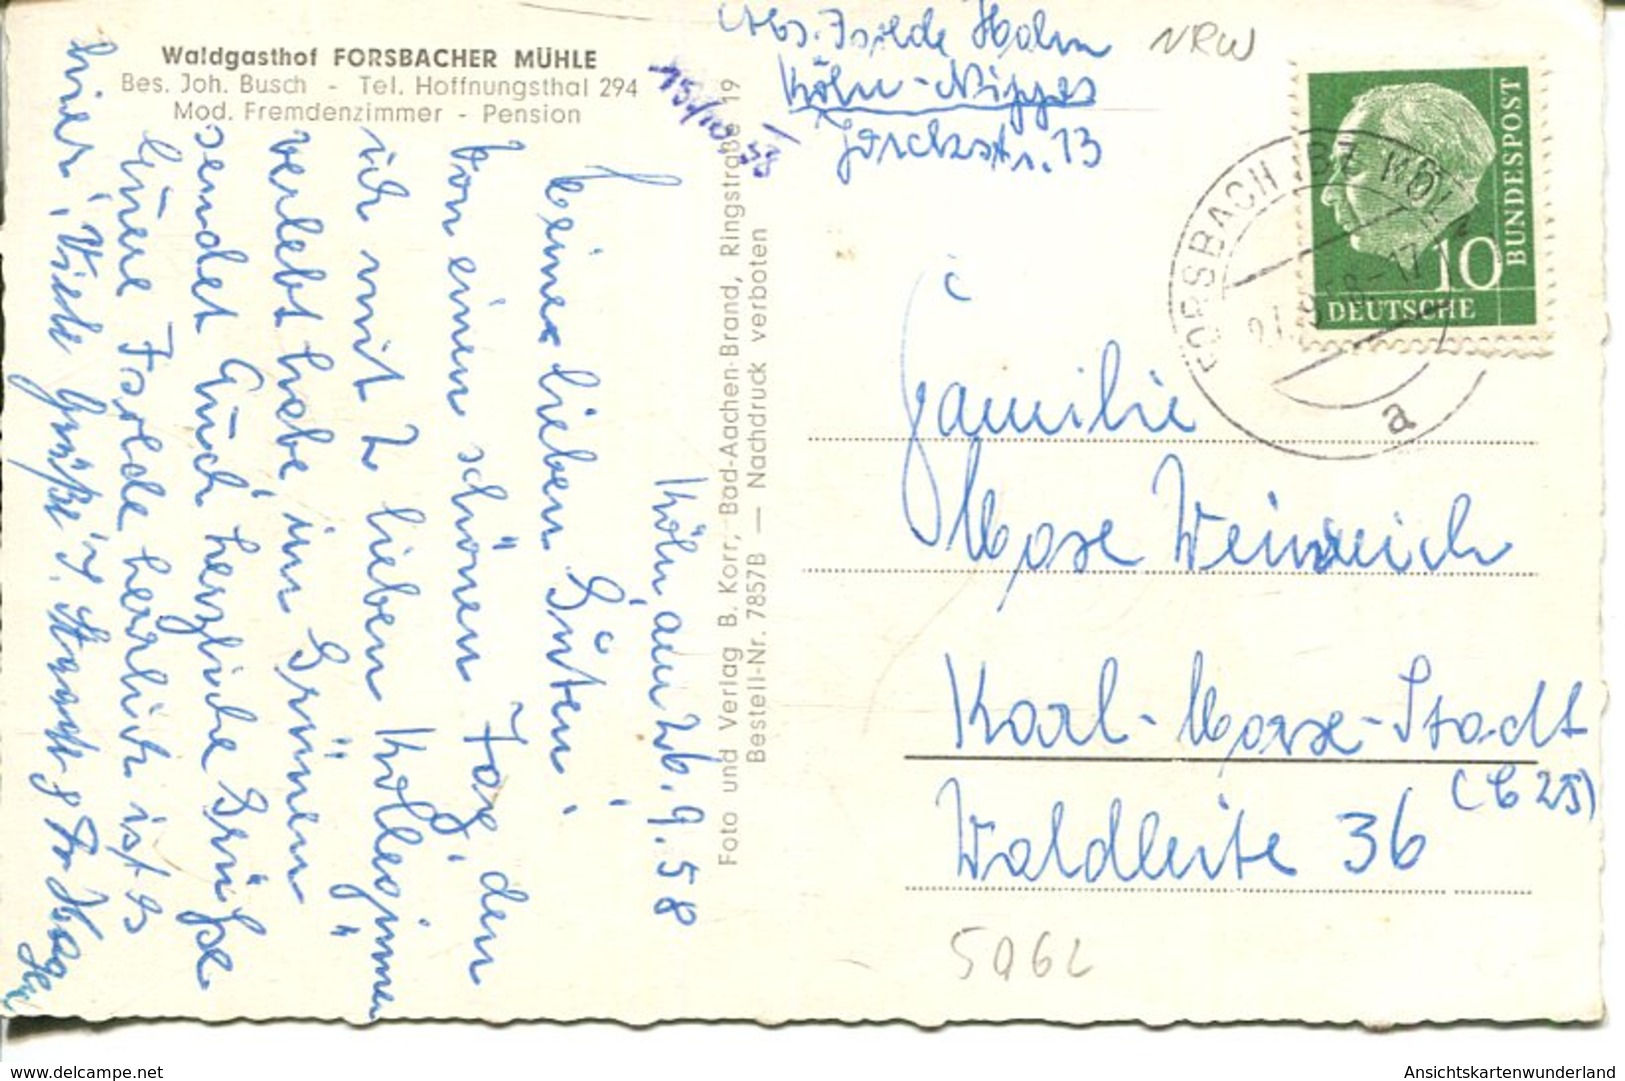 Waldgasthof FORSBACHER MÜHLE
Bes. Joh. Busch - Tel. Hoffnungsthal 294
Mod. Fremdenzimmer - Pension
Köln, am 26.9.58
Meine lieben Guten!
Von einem schönen Tag, den
ich mit 2 lieben Kolleginnen
verlebt habe, im "Grünen"
sendet Euch herzliche Grüße
Eure Isolde herrlich ist es
hier! Viele Grüße
Foto und Verlag B. Korr, Bad-Aachen-Brand, Ringstraße 19
Bestell-Nr. 7857B — Nachdruck verboten
15/10 58
Abs. Isolde Holm
Köln-Nippes
Yorckstr. 13
NRW
BUNDESPOST
10
DEUTSCHE
FORSBACH BZ KÖLN
a
Familie
Weinreich
Karl-Marx-Stadt
(C 25)
Waldleite 36
5062
www.delcampe.net
Ansichtskartenwunderland